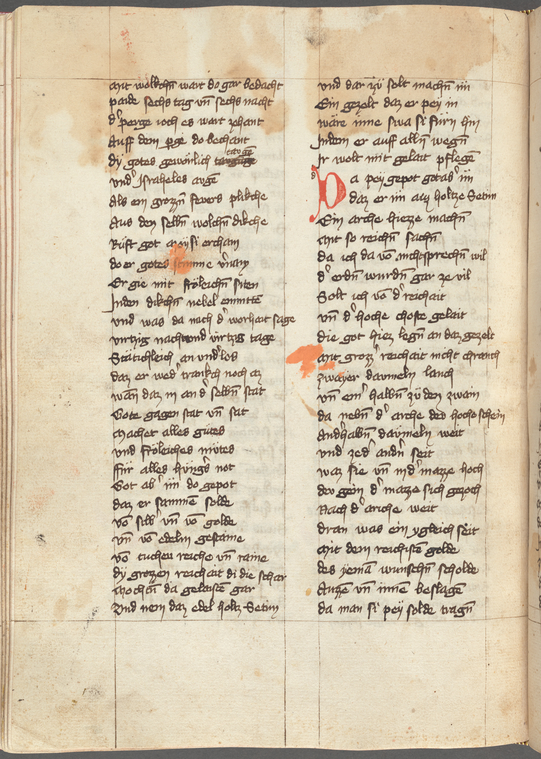 Mit wolkchn̄ wart do gar bedacht
paide sechs tag vn̄ sechs nacht
d' perge roch es wart zehant
Auff dem pge do bechant
dy gotes gewonlich tauge
vnd' Israheles auge
Als ein grozzn̄ fevers plikche
Aus den selbn̄ wolchn̄ dikche
Rüft got moysi ercham
do er gotes stimme v'nam
Er gie mit frölichn̄ siten
Inden dikchn̄ nebel enmittē
vnd was da nach d' worhait sage
virtzig nacht vnd virtzig tage
Stätichleich an vnd'los
daz er wed' trankch noch az
wan̄ daz in an d' selbn̄ stat
Gote gagen stat vn̄ sat
Machet alles gütes
vnd fröleiches mütes
Für alles hung's not
Got ab' im do gepot
daz er sammē solde
vō silb' vn̄ vō golde
vn̄ vō edelm gestaine
vō tuchen reiche vn̄ raine
dy grozzen reichait di die schar
Mochtn̄ da gelaistē gar
Vnd nem daz edel holtz Setim
vnd dar zü solt machn̄ im
Ein gezelt daz er pey in
wäre inne swa si fürn hin
Indem er auff alln̄ wegn̄
Ir wolt mit gelait pflegē
Da pey gepot got as' im
daz er im aus holtze Setim
Ein arche hiezze machn̄
Mit so reichn̄ sachn̄
da ich da vō nicht sprechn̄ wil
d' erdn̄ wurdn̄ gar ze vil
Solt ich vō d' reichait
vn̄ d' hoche choste gelait
die got hiez legn̄ an daz gezelt
Mit grozz' reichait nicht chranch
zwayer davmeln lanch
vn̄ ein' halbn̄ zü den zwain
da nebn̄ d' arche deo hoche schein
And'halbn̄ davmeln weit
vnd zed' andn̄ seit
waz sie vn̄ in d' mazze hoch
deo gein d' mazze sich gezoch
Nach d' arche weit
dran was ein ygleich seit
Mit dem reichistē golde
des yeman wunschn̄ scholde
Auzē vn̄ innē beslagē
da man si pey solde tragn̄